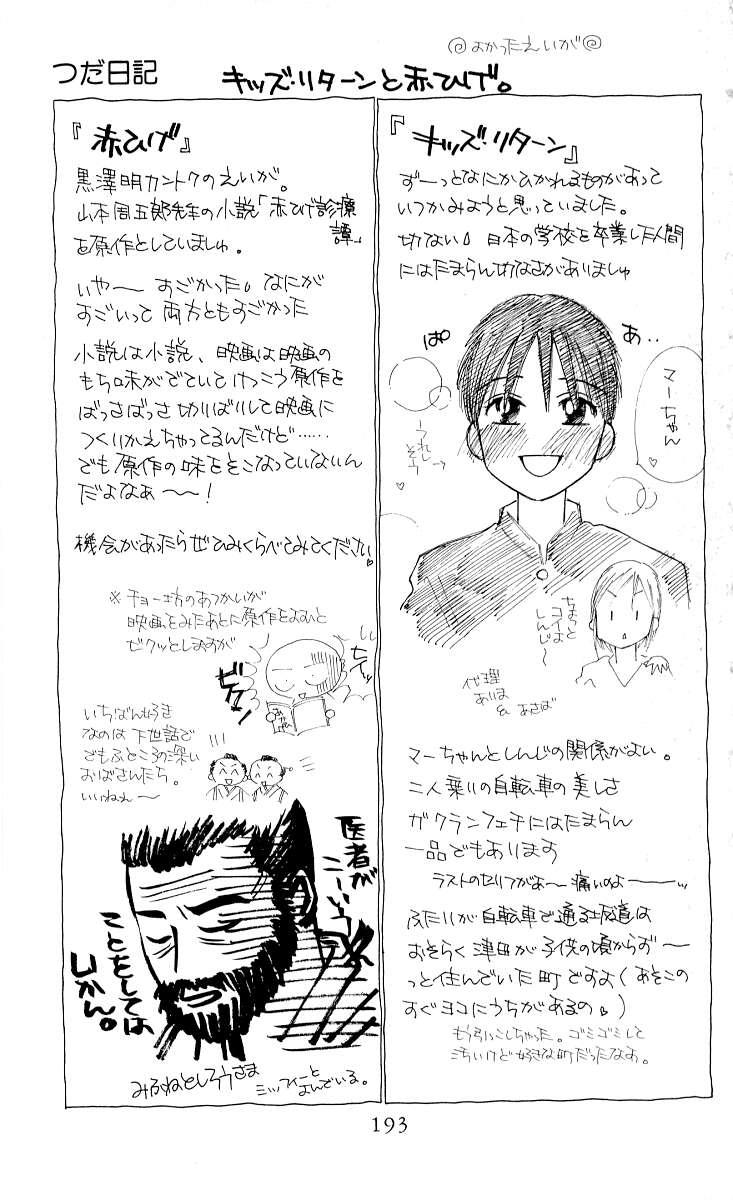 よかったえいが
つだ日記
キッズ・リターンと赤ひげ。
『キッズ・リターン』
ずーっとなにかひかれるものがあって
いつかみようと思っていました。
切ない。日本の学校を卒業した人間
にはたまらん切なさがありましゅ
あ‥
ぱぁ
マーちゃん
うれしそう
ちょっとコイよしんじ〜
代理
あいは
& あさば
マーちゃんとしんじの関係がよい。
二人乗りの自転車の美しさ
ガクランフェチにはたまらん
一品でもあります
ラストのセリフがよ〜痛いのよーーー
ふたりが自転車で通る坂道は
おそらく津田が子供の頃からず〜
っと住んでいた町ですよ(あそこの
すぐヨコにうちがあるの。)
もう引っこしちゃった。ゴミゴミして
汚いけど好きな町だったなぁ。
『赤ひげ』
黒澤明カントクのえいが。
山本周五郎先生の小説「赤ひげ診療譚」
を原作としていましゅ。
いや〜 すごかった。なにが
すごいって両方ともすごかった
小説は小説、映画は映画の
もち味がでていてけっこう原作を
ばっさばっさ切りばりして映画に
つくりかえちゃってるんだけど……
でも原作の味をそこなっていないん
だよなぁ〜〜!
機会があったらぜひみくらべてみてください
※チョー坊のあつかいが
映画をみたあとに原作をよむと
ビクッとしますが
ビクッ!
いちばんすきなのは下世話で
でもふところの深い
おばさんたち。
いいねぇ〜
医者が
こーいう
ことをしては
いかん。
みふねとしろうさま
ミッフィーとよんでいる。
193